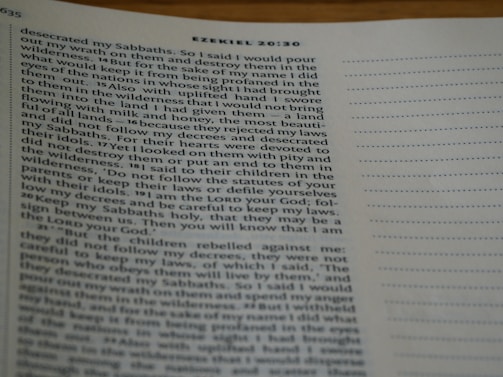 635
EZEKIEL 20:30
desecrated my Sabbaths. So I said I would pour
out my wrath on them and destroy them in the
wilderness. 14 But for the sake of my name I did
what would keep it from being profaned in the
eyes of the nations in whose sight I had brought
them out. 15 Also with uplifted hand I swore
to them in the wilderness that I would not bring
them into the land I had given them — a land
flowing with milk and honey, the most beauti-
ful of all lands — 16 because they rejected my laws
and did not follow my decrees and desecrated
my Sabbaths. For their hearts were devoted to
their idols. 17 Yet I looked on them with pity and
did not destroy them or put an end to them in
the wilderness. 18 I said to their children in the
wilderness, 'Do not follow the statutes of your
parents or keep their laws or defile yourselves
with their idols. 19 I am the LORD your God; fol-
low my decrees and be careful to keep my laws.
20 Keep my Sabbaths holy, that they may be a
sign between us. Then you will know that I am
the LORD your God.'
21 " 'But the children rebelled against me:
they did not follow my decrees, they were not
careful to keep my laws, of which I said, "The
person who obeys them will live by them," and
they desecrated my Sabbaths. So I said I would
pour out my wrath on them and spend my anger
against them in the wilderness. 22 But I withheld
my hand, and for the sake of my name I did what
would keep it from being profaned in the eyes
of the nations in whose sight I had brought
them out. 23 Also with uplifted hand I swore
to them in the wilderness that I would disperse
them among the nations and scatter them